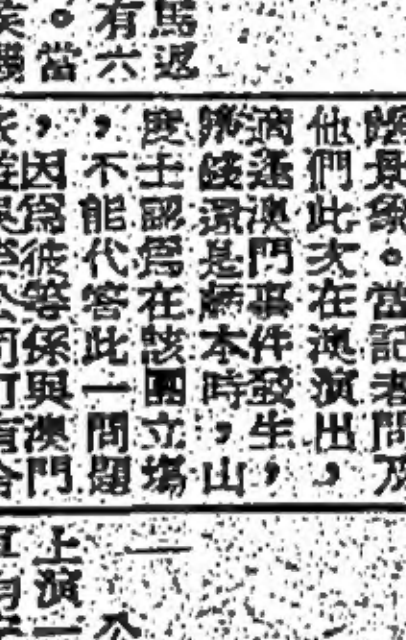 馬返
有六
。當
景象。當記者問及
他們此次在澳演出，
適逢澳門事件發生，
賺錢還是蝕本時，山
度士認爲在該團立場
，不能代答此一問題
，因爲彼等係與澳門
公司訂有合
一
上演一